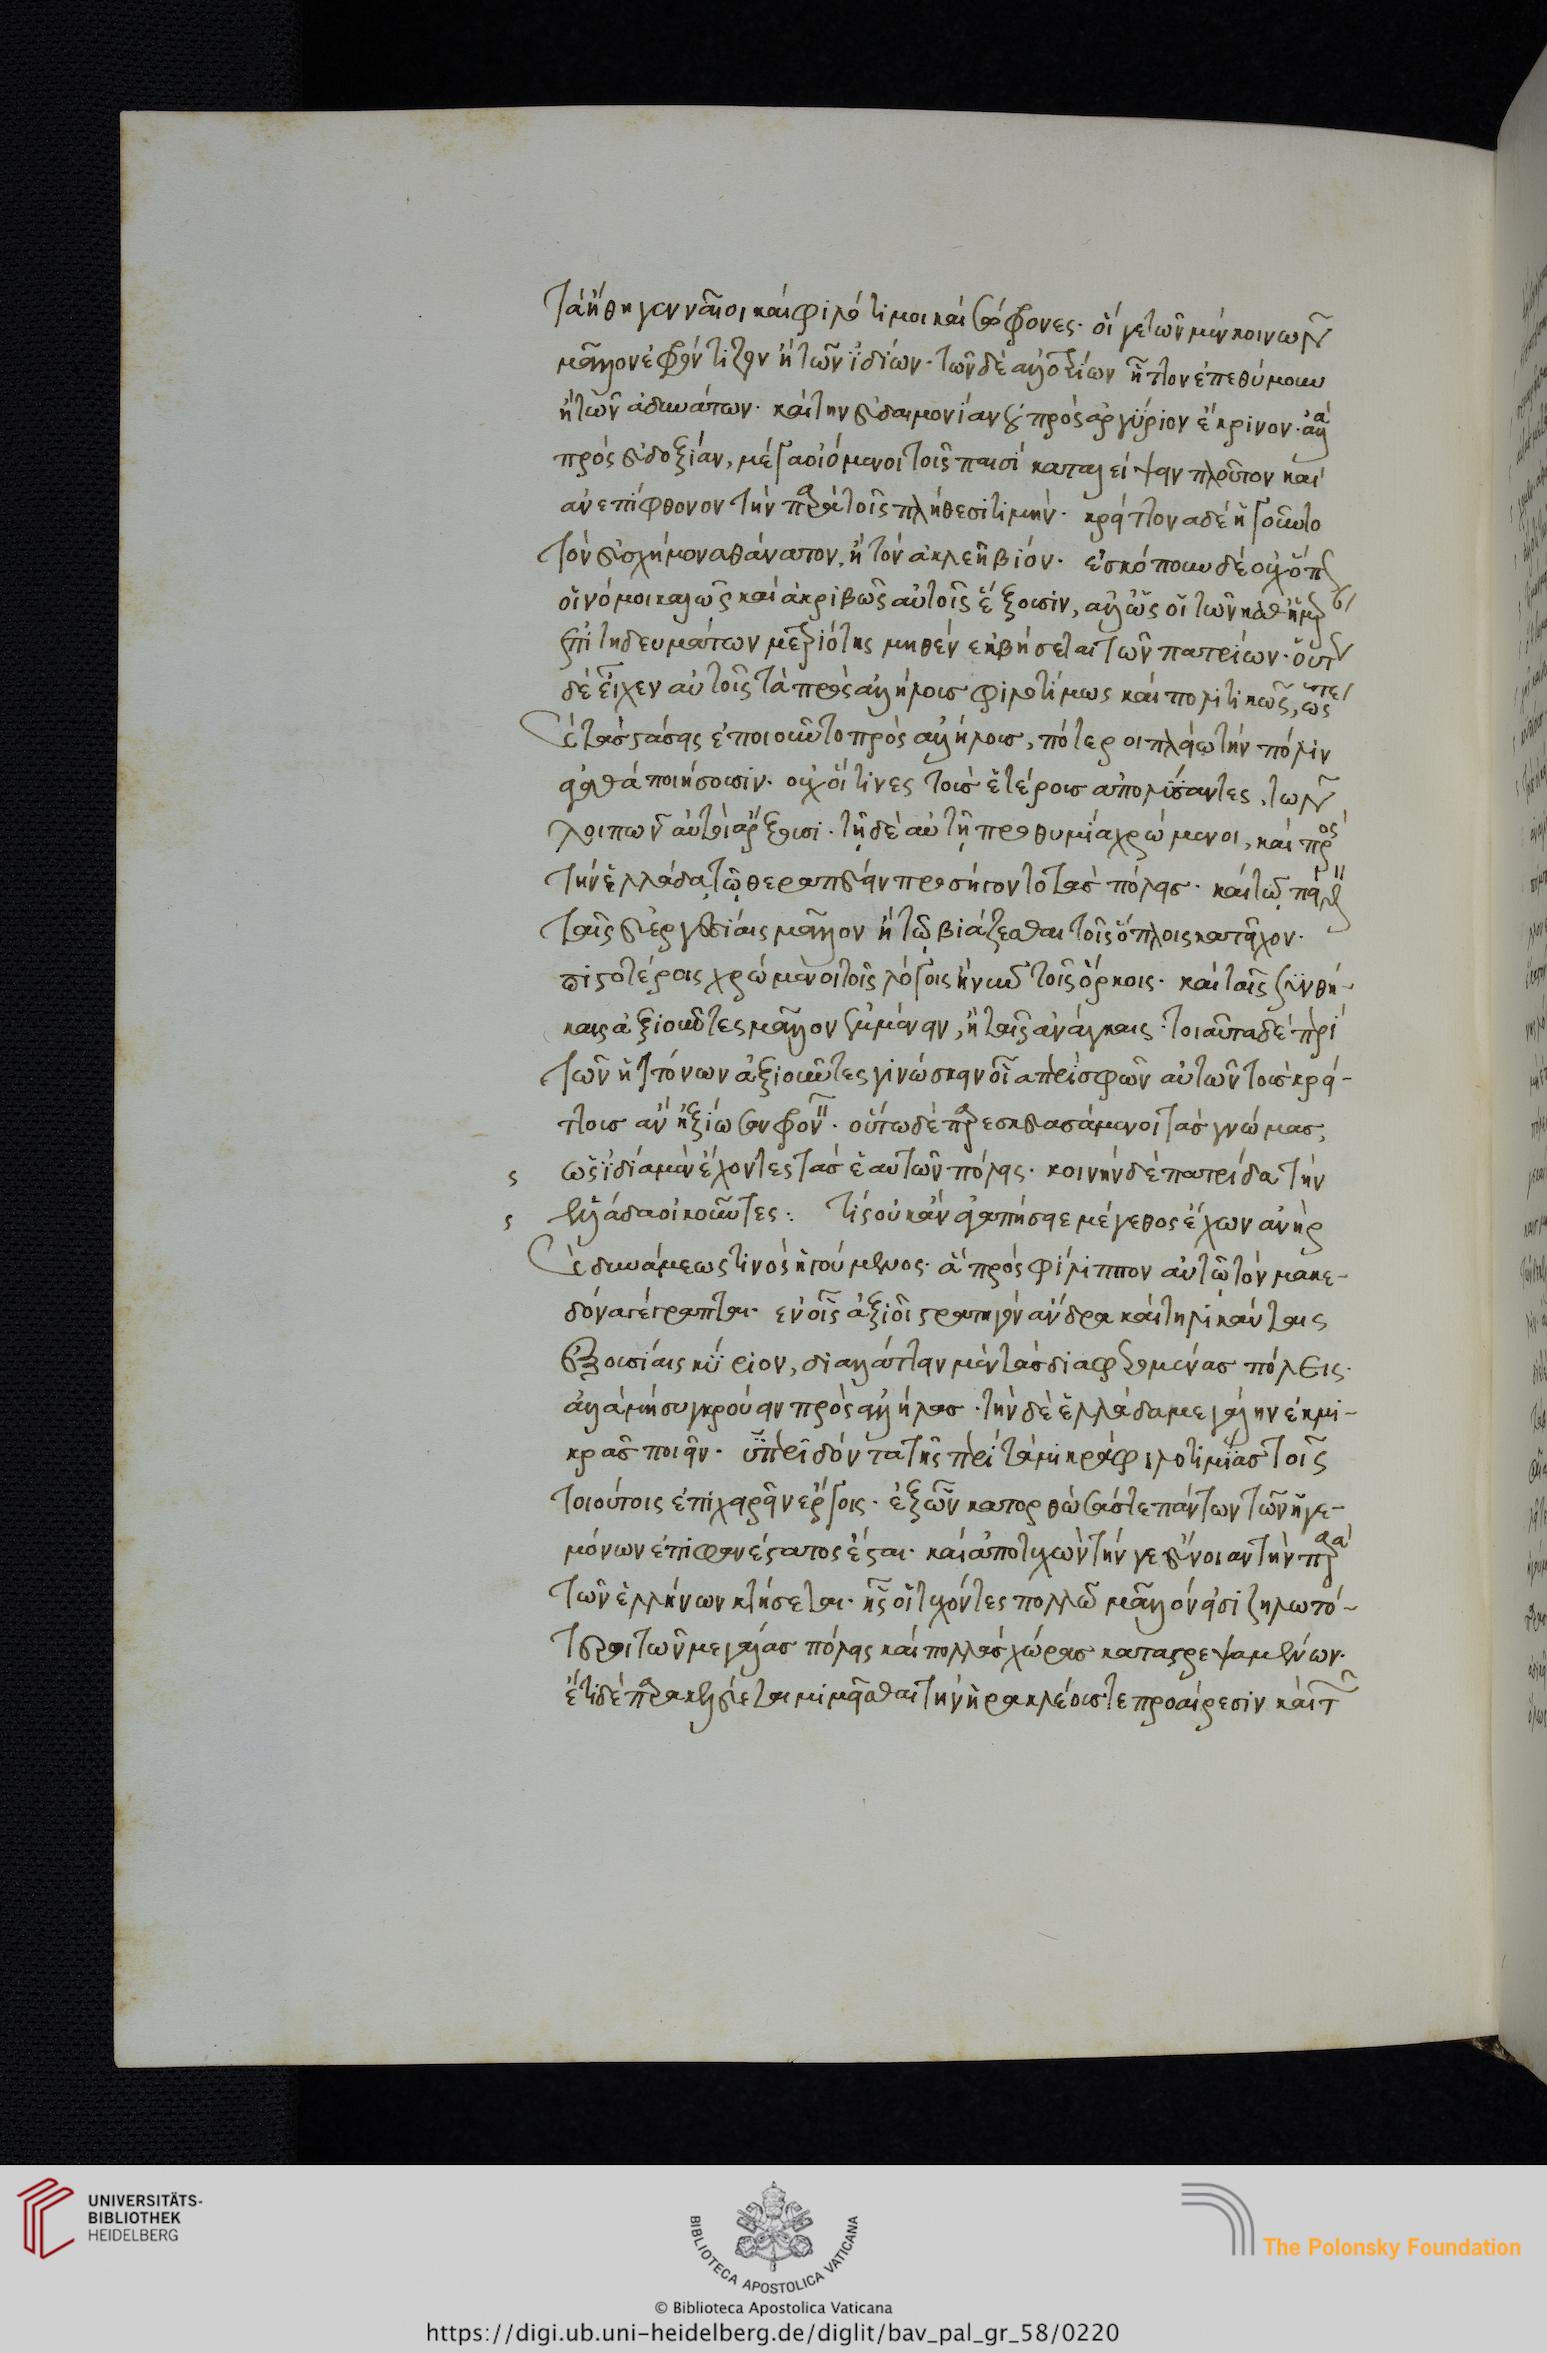 τὰ ἤθη γενναῖοι καὶ φιλότιμοι καὶ σώφρονες· οἵ γε τῶν μὲν κοινῶν
μᾶλλον ἐφρόντιζον ἢ τῶν ἰδίων· τῶν δὲ ἀλλοτρίων ἧττον ἐπεθύμουν
ἢ τῶν ἀδυνάτων· καὶ τὴν εὐδαιμονίαν οὐ πρὸς ἀργύριον ἔκρινον· ἀλλὰ
πρὸς εὐδοξίαν, μέγα οἰόμενοι τοῖς παισὶ καταλείψειν πλοῦτον καὶ
ἀνεπίφθονον τὴν παρὰ τοῖς πλήθεσι τιμήν· κρείττονα δὲ ἡγοῦντο
τὸν εὐσχήμονα θάνατον, ἢ τὸν ἀκλεῆ βίον· ἐσκόπουν δὲ οὐχ ὅπως
οἱ νόμοι καλῶς καὶ ἀκριβῶς αὐτοῖς ἕξουσιν, ἀλλ' ὡς ἡ τῶν καθ' ἡμέραν
ἐπιτηδευμάτων μετριότης μηθὲν ἐκβήσεται τῶν πατρίων· οὕτω
δὲ εἶχεν αὐτοῖς τὰ πρὸς ἀλλήλους φιλοτίμως καὶ πολιτικῶς, ὥστε
τὰς στάσεις ἐποιοῦντο πρὸς ἀλλήλους, πότεροι πλείω τὴν πόλιν
ἀγαθὰ ποιήσουσιν· οὐχ οἵτινες τοὺς ἑτέρους ἀπολέσαντες, τῶν
λοιπῶν αὐτοὶ ἄρξουσι· τῇ δὲ αὐτῇ προθυμίᾳ χρώμενοι, καὶ πρὸς
τὴν ἑλλάδα, τῷ θεραπεύειν προσήγοντο τὰς πόλεις· καὶ τῷ πείθειν
ταῖς εὐεργεσίαις μᾶλλον ἢ τῷ βιάζεσθαι τοῖς ὅπλοις κατεῖχον·
πιστοτέροις χρώμενοι τοῖς λόγοις ἢ νῦν τοῖς ὅρκοις· καὶ ταῖς συνθή-
καις ἀξιοῦντες μᾶλλον ἐμμένειν, ἢ ταῖς ἀνάγκαις· τοιαῦτα δὲ περὶ
τῶν ἡττόνων ἀξιοῦντες γινώσκειν οἷα περὶ σφῶν αὐτῶν τοὺς κρεί-
ττους ἂν ἠξίωσαν φρονεῖν· οὕτω δὲ παρεσκευασάμενοι τὰς γνώμας,
ὡς ἰδίᾳ μὲν ἔχοντες τὰς ἑαυτῶν πόλεις· κοινὴν δὲ πατρίδα τὴν
ἑλλάδα οἰκοῦντες: τίς οὐκ ἂν ἀγαπήσειε μέγεθος ἔχων ἀνὴρ
καὶ δυνάμεώς τινος ἡγούμενος· ἃ πρὸς φίλιππον αὐτῷ τὸν μακε-
δόνα γέγραπται· ἐν οἷς ἀξιοῖ στρατηγὸν ἄνδρα καὶ τηλικαύταις
ἐξουσίαις κύριον, διαλάττειν μὲν τὰς διαφερομένας πόλεις·
ἀλλὰ μὴ συγκρούειν πρὸς ἀλλήλας· τὴν δὲ ἑλλάδα μεγάλην ἐκ μι-
κρᾶς ποιεῖν· ὑπεριδόντα τῆς περὶ τὰ μικρὰ φιλοτιμίας τοῖς
τοιούτοις ἐπιχειρεῖν ἔργοις· ἐξ ὧν κατορθώσας τε πάντων τῶν ἡγε-
μόνων ἐπιφανέστατος ἔσται· καὶ ἀποτυχὼν τήν γε εὔνοιαν τὴν παρὰ
τῶν ἑλλήνων κτήσεται· ἧς οἱ τυχόντες πολλῷ μᾶλλόν εἰσι ζηλωτό-
τεροι τῶν μεγάλας πόλεις καὶ πολλὰς χώρας καταστρεψαμένων·
ἔτι δὲ παρακελεύεται μιμεῖσθαι τὴν ἡρακλέους τε προαίρεσιν καὶ τ
UNIVERSITÄTS-
BIBLIOTHEK
HEIDELBERG
BIBLIOTECA APOSTOLICA VATICANA
The Polonsky Foundation
© Biblioteca Apostolica Vaticana
https://digi.ub.uni-heidelberg.de/diglit/bav_pal_gr_58/0220